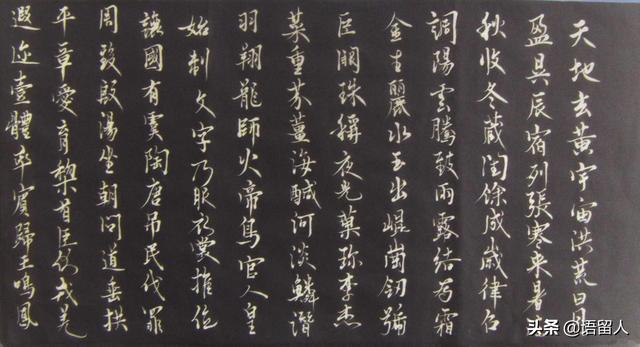 天地玄黃宇宙洪荒日月
盈昃辰宿列張寒来暑往
秋收冬藏閏餘成歲律召
調陽雲騰致雨露結為霜
金生麗水玉出崐崗劒號
巨闕珠稱夜光菓珎李柰
菜重芥薑海醎河淡鱗潛
羽翔龍師火帝鳥官人皇
始制文字乃服衣裳推位
讓國有虞陶唐吊民伐罪
周發殷湯坐朝問道垂拱
平章愛育黎首臣伏戎羌
遐迩壹體率賓歸王鳴鳳
头条 @语留人